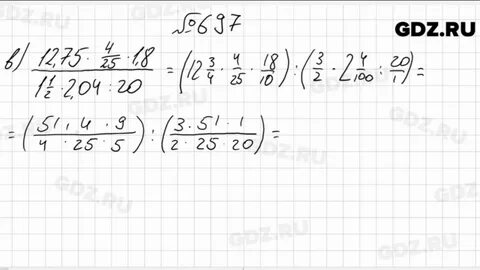 №697
GDZ.RU
в) (12,75 · 4/25 · 1,8)/(1 1/2 · 2,04 : 20) = (12 3/4 · 4/25 · 18/10) : (3/2 · 2 4/100 : 20/1) =
= (51 · 4 · 9)/(4 · 25 · 5) : (3 · 51 · 1)/(2 · 25 · 20) =
GDZ.RU
GDZ.RU
GDZ.RU
GDZ.RU
GDZ.RU